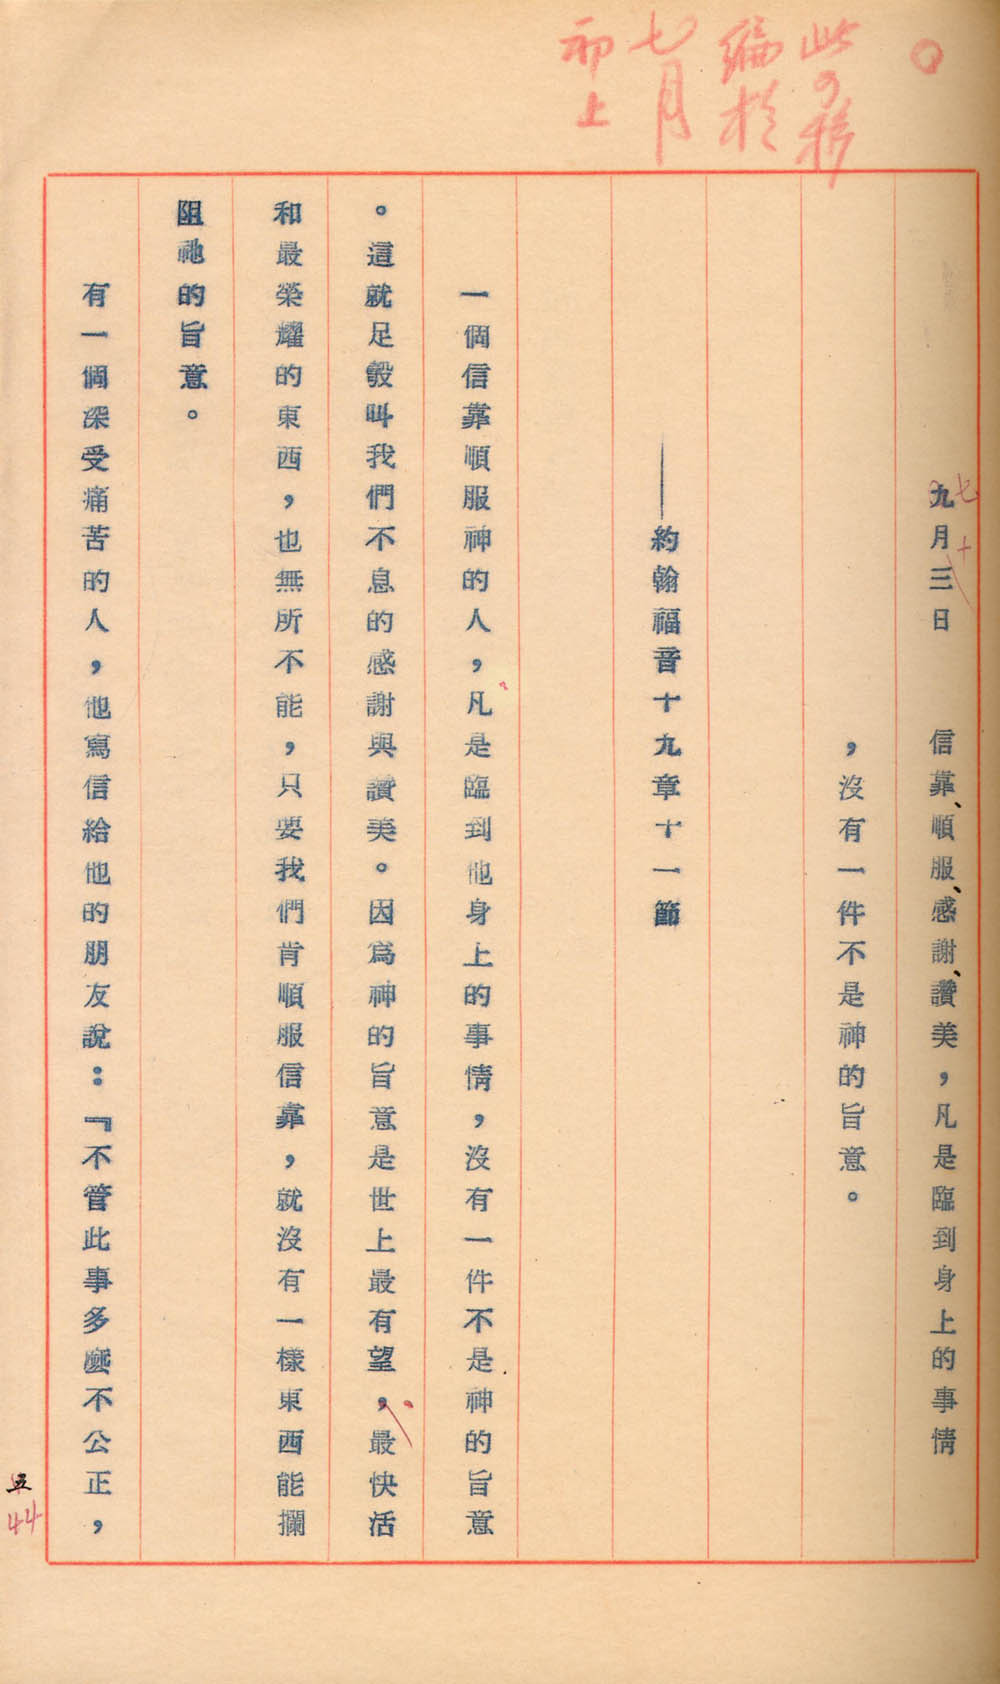 此の稿
編於
七月
初上
九月三日　信靠、順服、感謝、讚美，凡是臨到身上的事情
七
十
，沒有一件不是神的旨意。
——約翰福音十九章十一節
一個信靠順服神的人，凡是臨到他身上的事情，沒有一件不是神的旨意
。這就足彀叫我們不息的感謝與讚美。因爲神的旨意是世上最有望，最快活
和最榮耀的東西，也無所不能，只要我們肯順服信靠，就沒有一樣東西能攔
阻祂的旨意。
有一個深受痛苦的人，他寫信給他的朋友說：『不管此事多麼不公正，
五
44